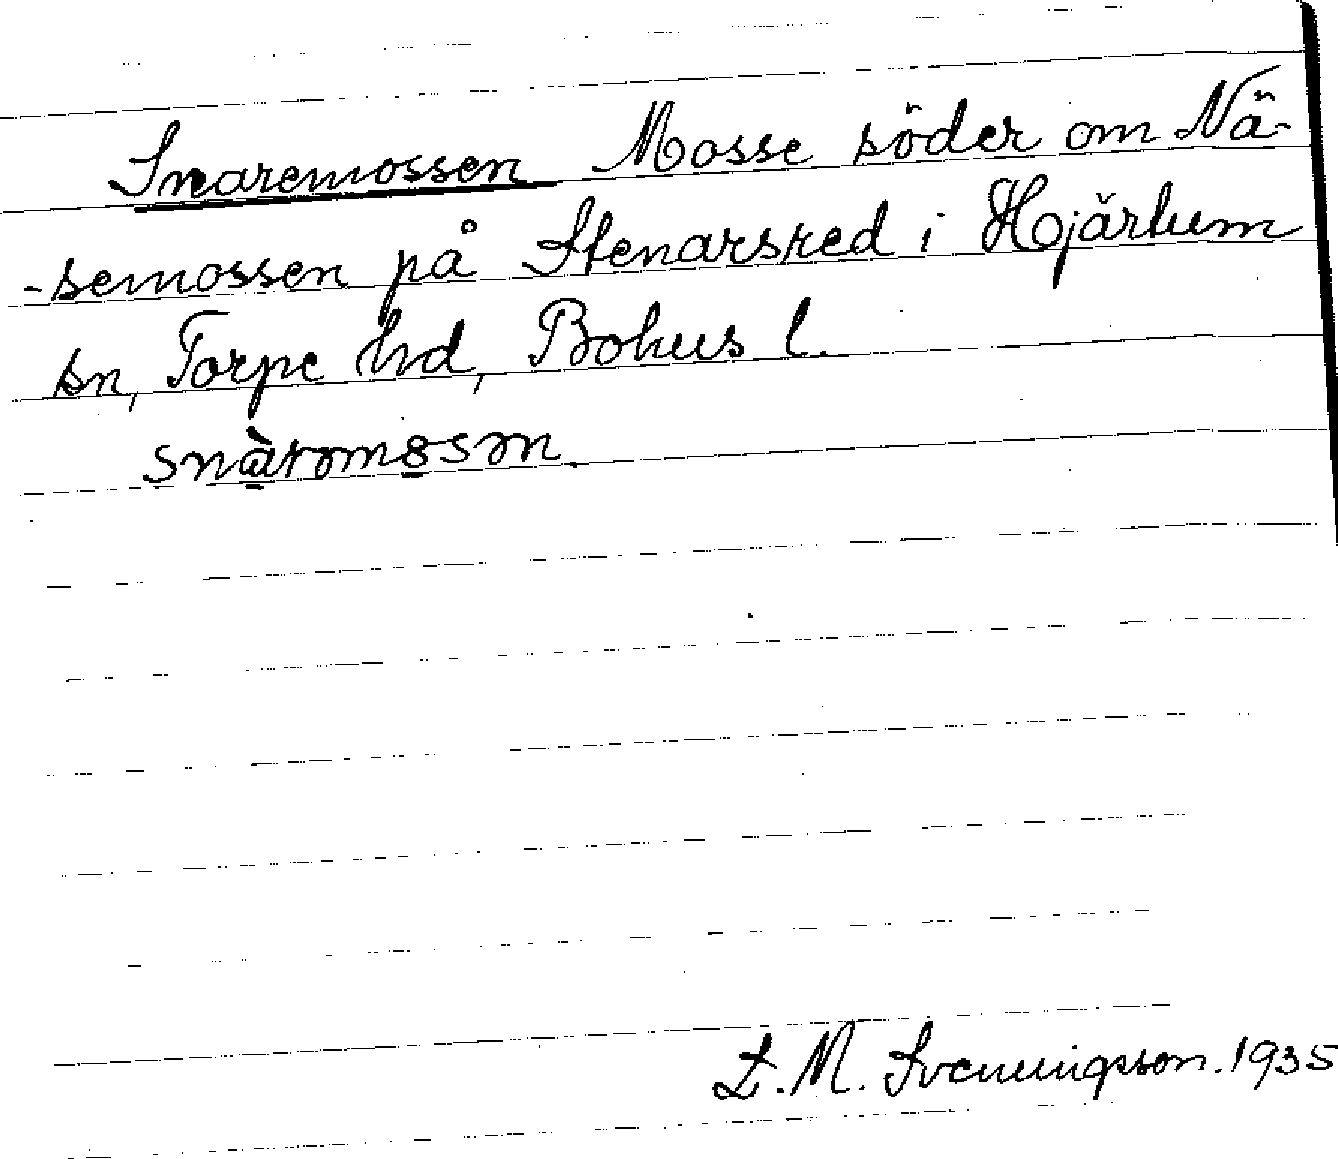 Snaremossen Mosse söder om Nä-
-semossen på Stenarsred i Hjärtum
sn, Torpe hd, Bohus l.
snàrəmosən
L. M. Svenningsson. 1935